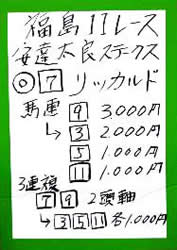 福島11レース
安達太良ステークス
◎ 7 リッカルド
馬連 9 3,000円
↳ 3 2,000円
5 1,000円
11 1,000円
3連複 2頭軸
7 9
↳ 3 5 11 各1,000円